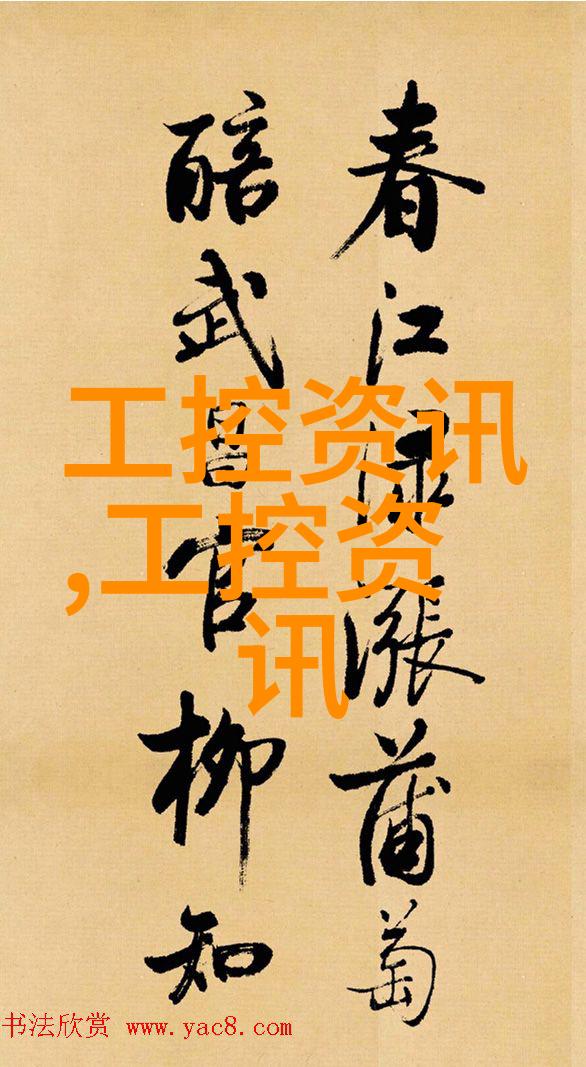 春江渌涨蒲萄
醅武昌官柳知
工控资讯
,工控资
讯
书法欣赏 www.yac8.com